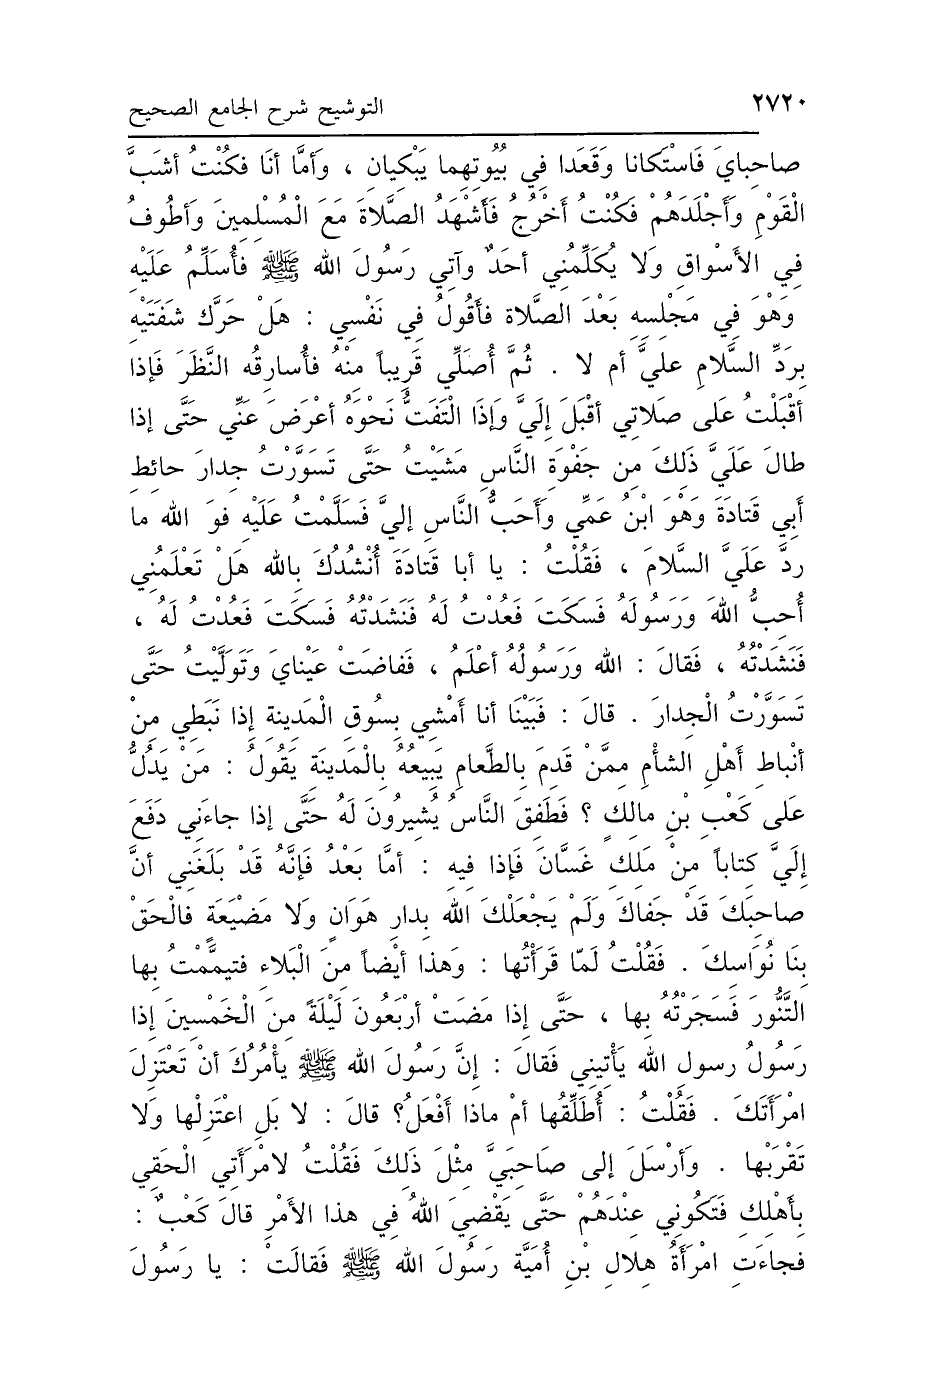 ٢٧٢٠
التوشيح شرح الجامع الصحيح
صاحبايَ فَاسْتَكانا وَقَعَدا فِي بُيُوتِهِما يَبْكِيانِ ، وَأَمَّا أنَا فَكُنْتُ أشَبَّ
الْقَوْمِ وَأجْلَدَهُمْ فَكُنْتُ أَخْرُجُ فَأَشْهَدُ الصَّلاةَ مَعَ الْمُسْلِمِينَ وَأطُوفُ
فِي الأَسْواقِ وَلا يُكَلِّمُنِي أحَدٌ وآتِي رَسُولَ الله ﷺ فأُسَلِّمُ عَلَيْهِ
وَهْوَ فِي مَجْلِسِهِ بَعْدَ الصَّلاة فأَقُولُ فِي نَفْسِي : هَلْ حَرَّك شَفَتَيْهِ
بِرَدِّ السَّلامِ عليَّ أم لا . ثُمَّ أُصَلِّي قَرِيباً منْهُ فأُسارِقُه النَّظَرَ فَإذا
أقْبَلْتُ عَلى صَلاتِي أقْبَلَ إلَيَّ وَإذَا الْتَفَتُّ نَحْوَهُ أعْرَضَ عَنِّي حَتَّى إذا
طالَ عَلَيَّ ذَلِكَ مِن جَفْوَةِ النَّاسِ مَشَيْتُ حَتَّى تَسَوَّرْتُ جِدارَ حائِطِ
أَبِي قَتَادَةَ وَهْوَ ابْنُ عَمِّي وأَحَبُّ النَّاسِ إليَّ فَسَلَّمْتُ عَلَيْهِ فوَ الله ما
رَدَّ عَلَيَّ السَّلامَ ، فَقُلْتُ : يا أبا قَتادَةَ أُنْشُدُكَ بِالله هَلْ تَعْلَمُنِي
أُحِبُّ اللهَ وَرَسُولَهُ فَسَكَتَ فَعُدْتُ لَهُ فَنَشَدْتُهُ فَسَكَتَ فَعُدْتُ لَهُ ،
فَنَشَدْتُه ، فَقالَ : الله وَرَسُولُهُ أعْلَمُ ، فَفاضَتْ عَيْنايَ وَتَولَّيْتُ حَتَّى
تَسَوَّرْتُ الْجِدارَ . قالَ : فَبَيْنَا أنا أَمْشِي بِسُوقِ الْمَدِينةِ إذا نَبَطِي مِنْ
أنْباطِ أَهْلِ الشأْمِ مِمَّنْ قَدِمَ بِالطَّعامِ يَبِيعُهُ بِالْمَدِينَة يَقُولُ : مَنْ يَدُلُّ
عَلى كَعْبِ بْنِ مالِكٍ ؟ فَطَفِقَ النَّاسُ يُشِيرُونَ لَهُ حَتَّى إذا جاءَنِي دَفَعَ
إلَيَّ كِتاباً مِنْ مَلِكِ غَسَّانَ فَإذا فيه : أمَّا بَعْدُ فَإنَّهُ قَدْ بَلَغَنِي أنَّ
صاحِبَكَ قَدْ جَفاكَ وَلَمْ يَجْعَلْكَ الله بِدارِ هَوَانٍ وَلا مَضْيَعَةٍ فالْحَقْ
بِنَا نُوَاسِكَ . فَقُلْتُ لَمّا قَرَأْتُها : وَهذا أيْضاً مِنَ الْبَلاء فتيمَّمْتُ بِها
التَّنُّورَ فَسَجَرْتُهُ بِها ، حَتَّى إذا مَضَتْ أرْبَعُونَ لَيْلَةً مِنَ الْخَمْسِينَ إذا
رَسُولُ رسولِ الله يَأْتِينِي فَقالَ : إنَّ رَسُولَ الله ﷺ يأْمُرُكَ أنْ تَعْتَزِلَ
امْرَأَتَكَ . فَقُلْتُ : أُطَلِّقُها أمْ ماذا أَفْعَلُ؟ قالَ : لا بَلِ اعْتَزِلْها وَلا
تَقْرَبْها . وَأرْسَلَ إلى صَاحِبَيَّ مثْلَ ذَلِكَ فَقُلْتُ لامْرأَتِي الْحَقِي
بِأَهْلِكِ فَتَكُونِي عِنْدَهُمْ حَتَّى يَقْضِيَ اللهُ فِي هذا الأمْرِ قالَ كَعْبٌ :
فَجاءَتِ امْرَأَةُ هِلالِ بْنِ أُمَيَّة رَسُولَ الله ﷺ فَقالَتْ : يا رَسُولَ